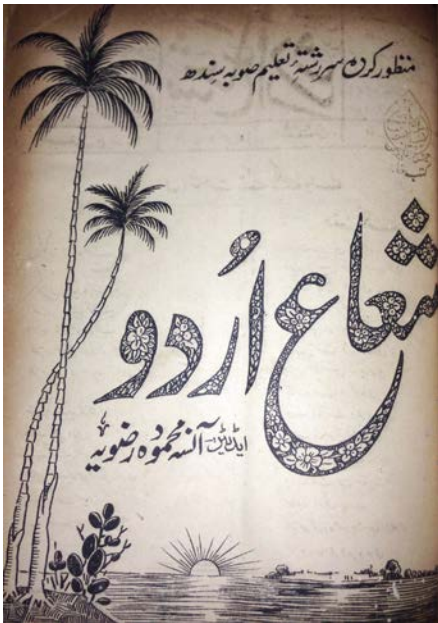 منظور کردہ سررشتۂ تعلیم صوبہ سندھ
شعاع اُردو
ایڈیٹر۔ آنسہ محمودہ رضویہ